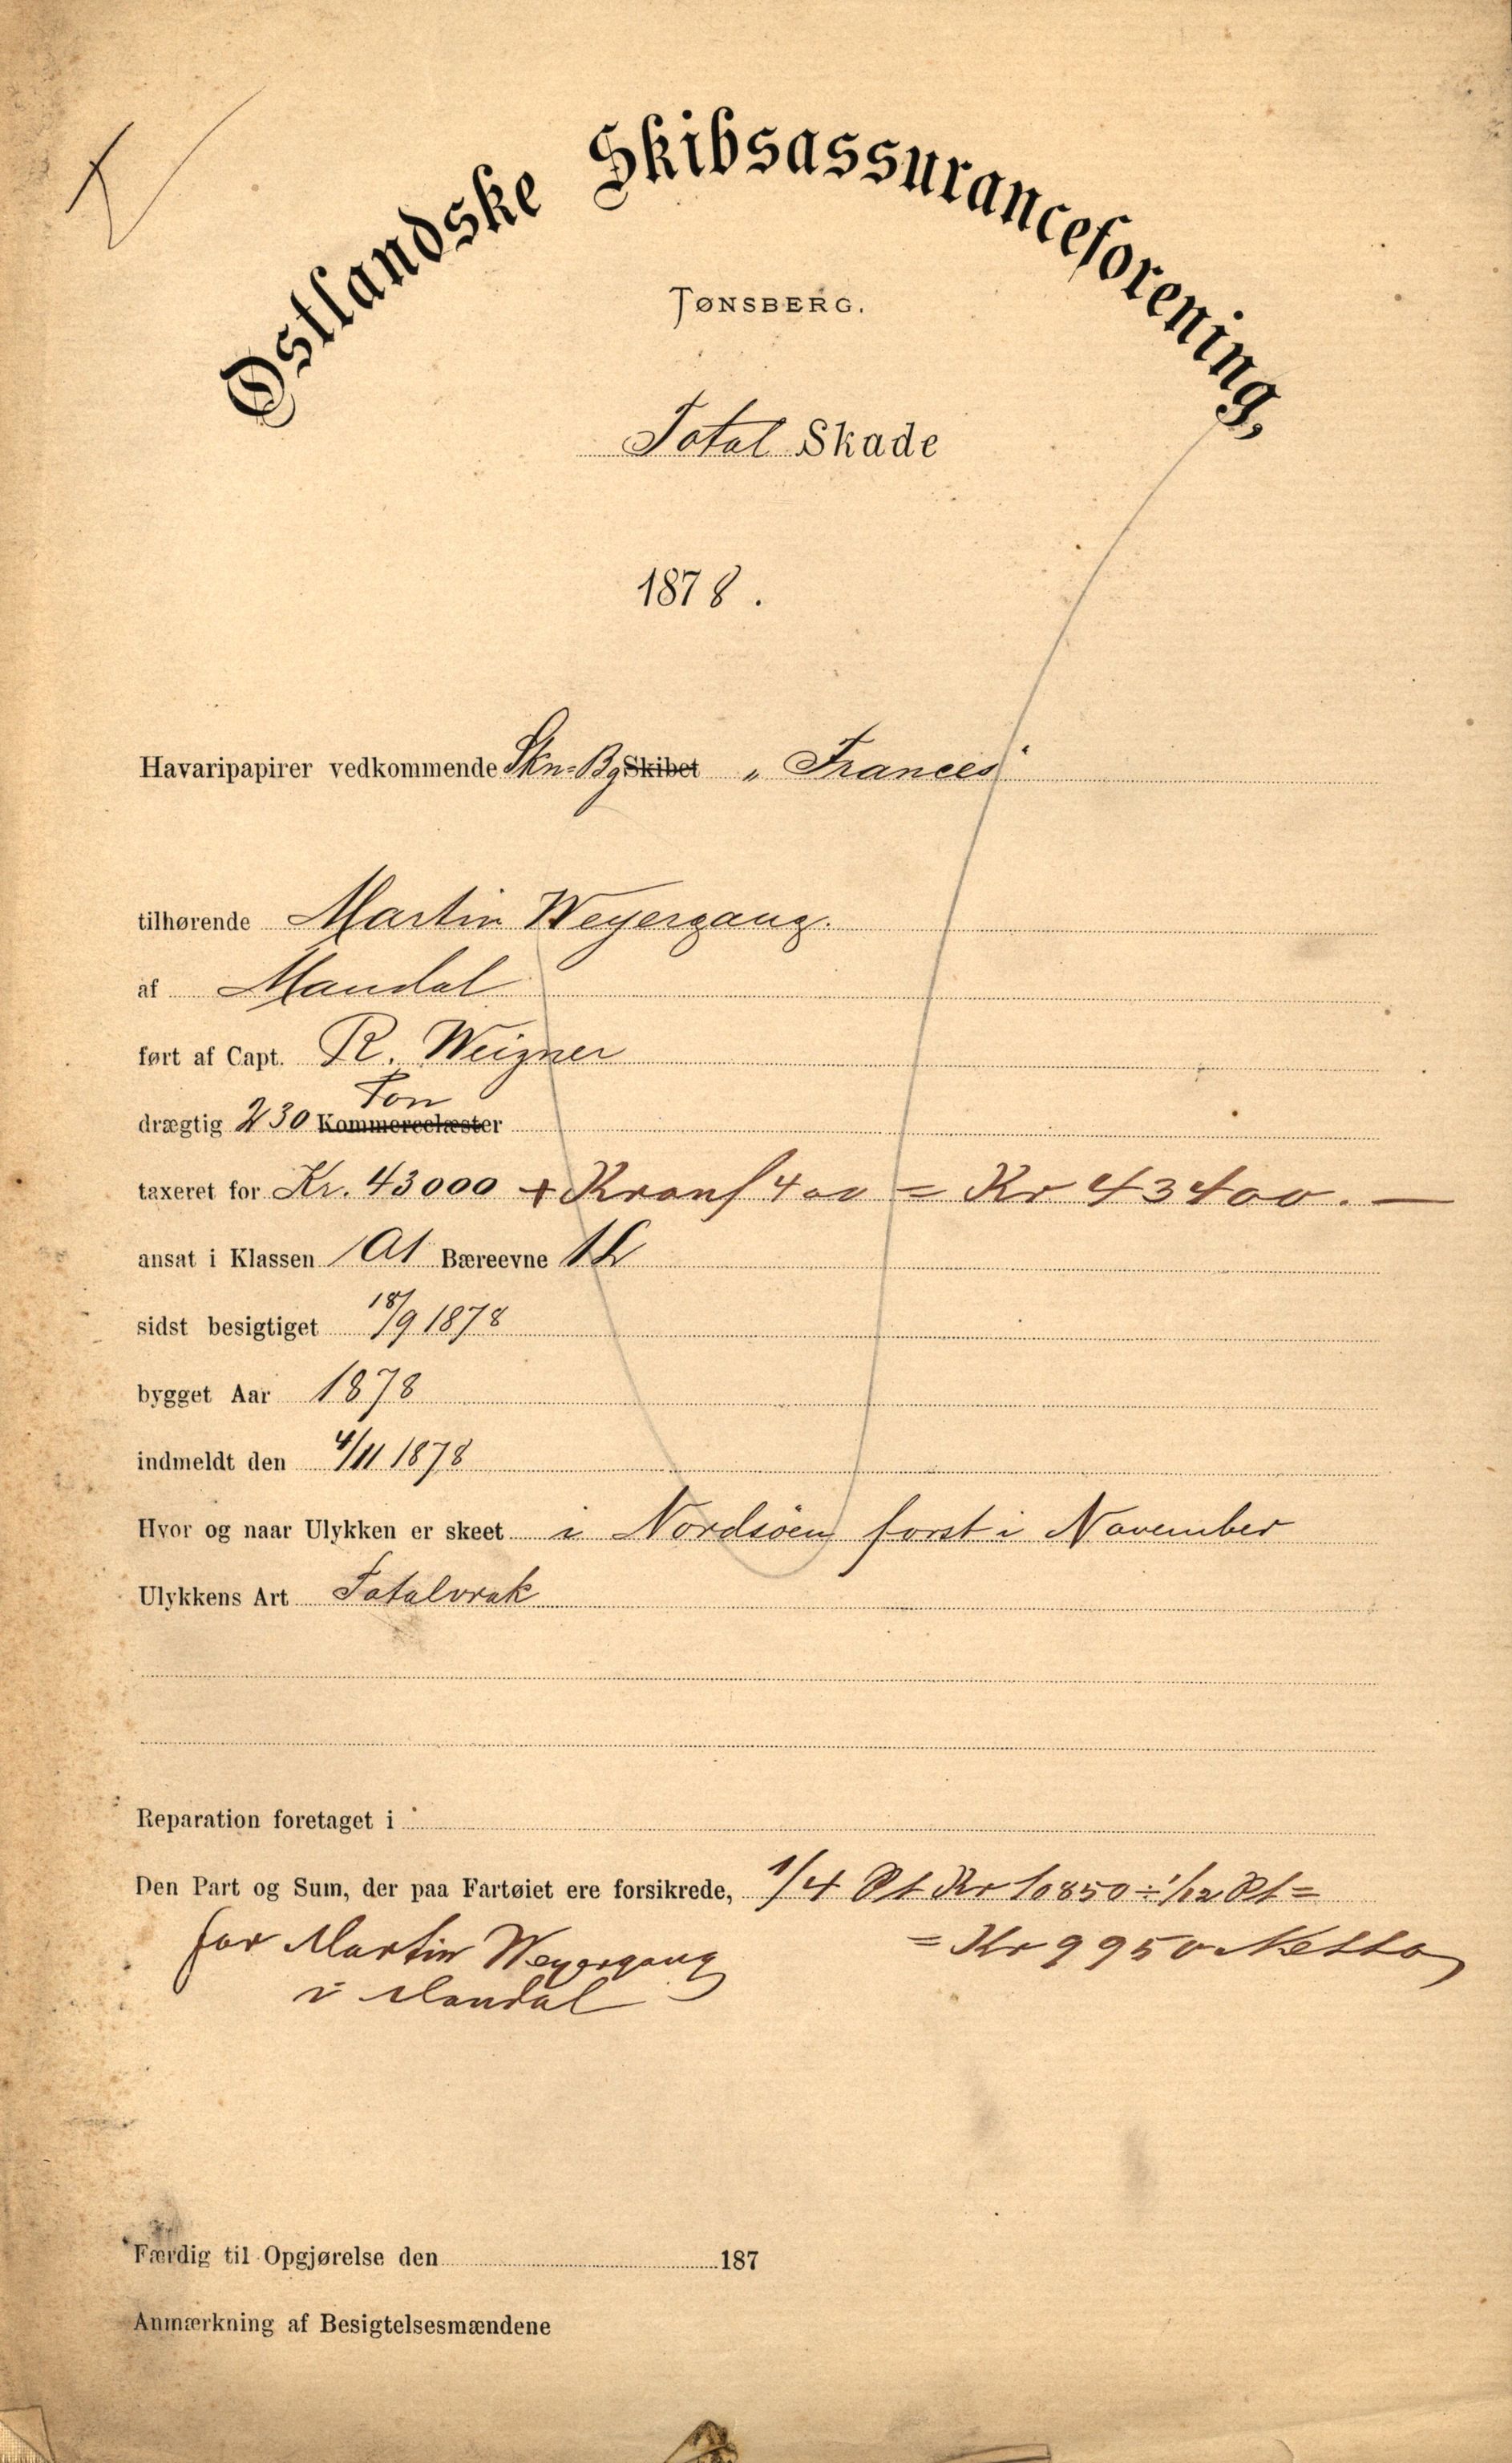 Østlandske Skibsassuranceforening,
TØNSBERG.
Total Skade
1878.
Havaripapirer vedkommende Skn-Bg Skibet „Frances"
tilhørende Martin Weyergang.
af Mandal
ført af Capt. R. Weigner
Ton
drægtig 230 Kommercelæster
taxeret for Kr. 43000 + Kronf 400 = Kr 43400.—
ansat i Klassen A1 Bæreevne
sidst besigtiget 18/9 1878
bygget Aar 1878
indmeldt den 4/11 1878
Hvor og naar Ulykken er skeet i Nordsöen forst i November
Ulykkens Art Totalvrak
Reparation foretaget i
Den Part og Sum, der paa Fartøiet ere forsikrede, 1/4 Pt Kr 10850 ÷ 1/12 Pt =
= Kr 9950 Netto
for Martin Weyergang
i Mandal
Færdig til Opgjørelse den 187
Anmærkning af Besigtelsesmændene